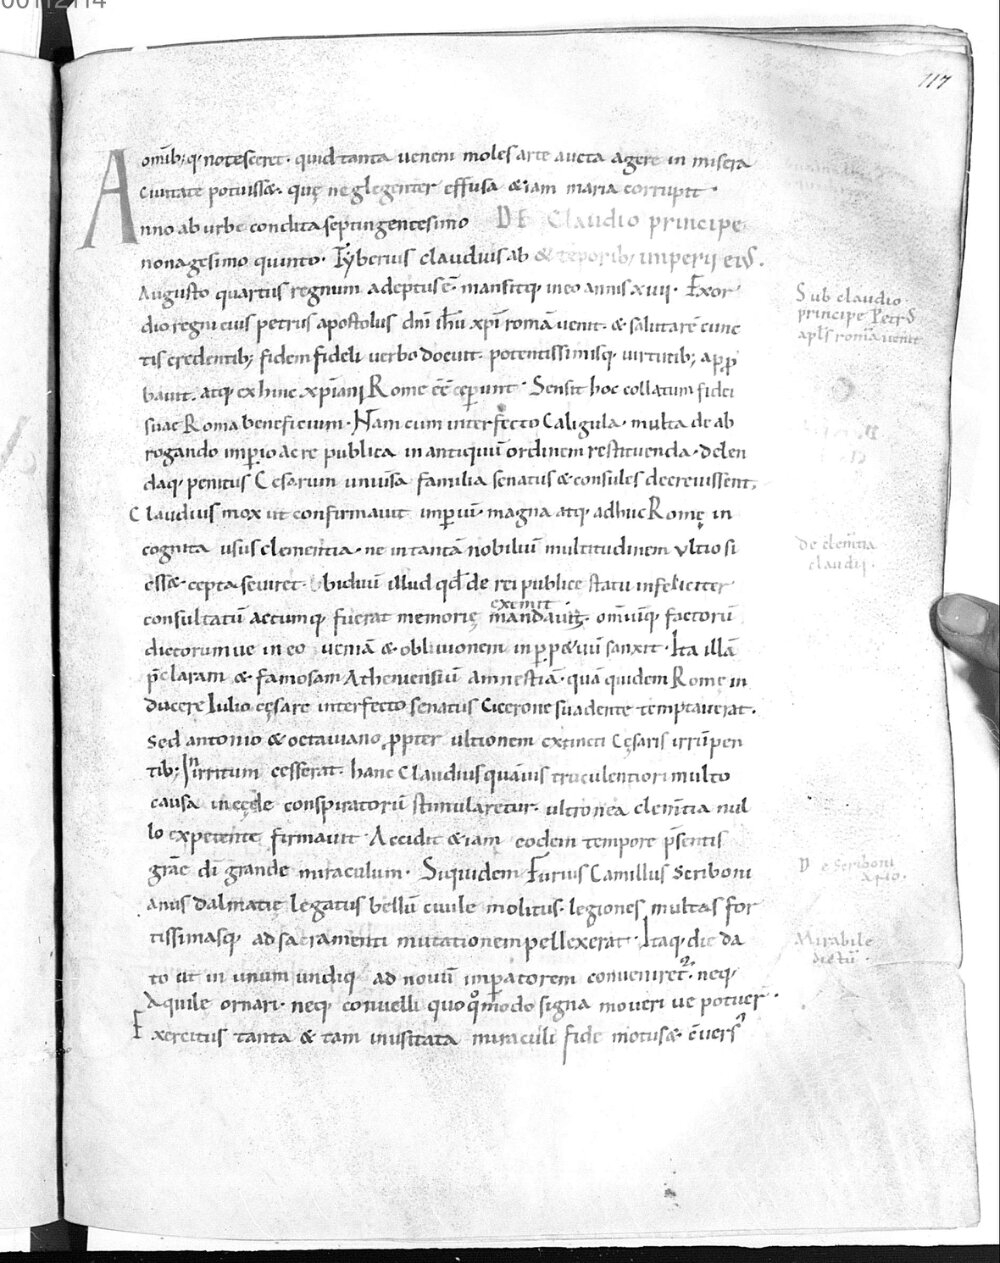 00112114
117
omib; q; notesceret · quid tanta ueneni moles arte aucta agere in misera
ciuitate potuisset · quę neglegenter effusa etiam maria corrupit ·
Anno ab urbe condita septingentesimo DE Claudio principe
nonagesimo quinto · Tyberius claudius ab & teporib; imperii eius .
Augusto quartus regnum adeptus ē · mansitq; in eo annis xiiii · Exor
dio regni eius petrus apostolus dni ihu xpi romā uenit · & salutarē cunc
tis credentib; fidem fideli uerbo docuit · potentissimisq; uirtutib; app
bauit · atq; ex hinc xpiani Rome ēē ceperunt · Sensit hoc collatum fidei
suae Roma beneficium · Nam cum interfecto Caligula · multa de ab
rogando imperio ac re publica in antiquū ordinem restituenda · delen
daq; penitus Cesarum uniuersa familia senatus & consules decreuissent;
Claudius mox ut confirmauit imperiū · magna atq; adhuc Romę in
cognita usus clementia · ne in tantā nobiliū multitudinem ultio si
esset cepta seuiret · biduū illud qd de rei publice statu infeliciter
consultatū actumq; fuerat memorię exemit
mandauit · omniūq; factorū
dictorumue in eo ueniā & obliuionem in ppetuū sanxit · Ita illā
pclaram & famosam Atheniensiū amnestiā · quā quidem Rome in
ducere Iulio cęsare interfecto senatus Cicerone suadente temptauerat ·
Sed antonio & octauiano ppter ultionem extincti Cęsaris irrūpen
tib; In irritum cesserat · hanc Claudius quāuis truculentiori multo
causa in cęde conspiratorū stimularetur · ultronea clemtia nul
lo expetente firmauit · Accidit etiam eodem tempore psentis
gratiae di grande miraculum · Siquidem Furius Camillus Scriboni
anus dalmatię legatus bellū ciuile molitus · legiones multas for
tissimasq; ad sacramenti mutationem pellexerat · Itaq; die da
to ut in unum undiq; ad nouū imperatorem conueniret · neq;
Aquile ornari · neq; conuelli quoquomodo signa moueri ue potuer ·
Exercitus tanta & tam inusitata miraculi fide motus & cuers
Sub claudio
principe Petrus
apls romā uenit
de clemtia
claudii ·
De Scriboni
ano ·
Mirabile
dictū ·